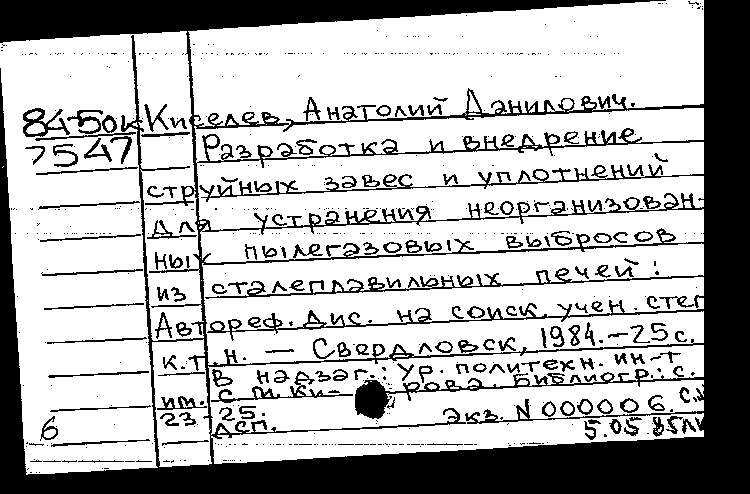 84-5ок Киселев, Анатолий Данилович.
7547 Разработка и внедрение
струйных завес и уплотнений
для устранения неорганизован-
ных пылегазовых выбросов
из сталеплавильных печей:
Автореф. дис. на соиск. учен. степ
к.т.н. — Свердловск, 1984.-25с.
В надзаг.: Ур. политехн. ин-т
им. С.М. Ки- рова. Библиогр.: с.
23-25.
ДСП. Экз. N 000006.
6 5.05.85